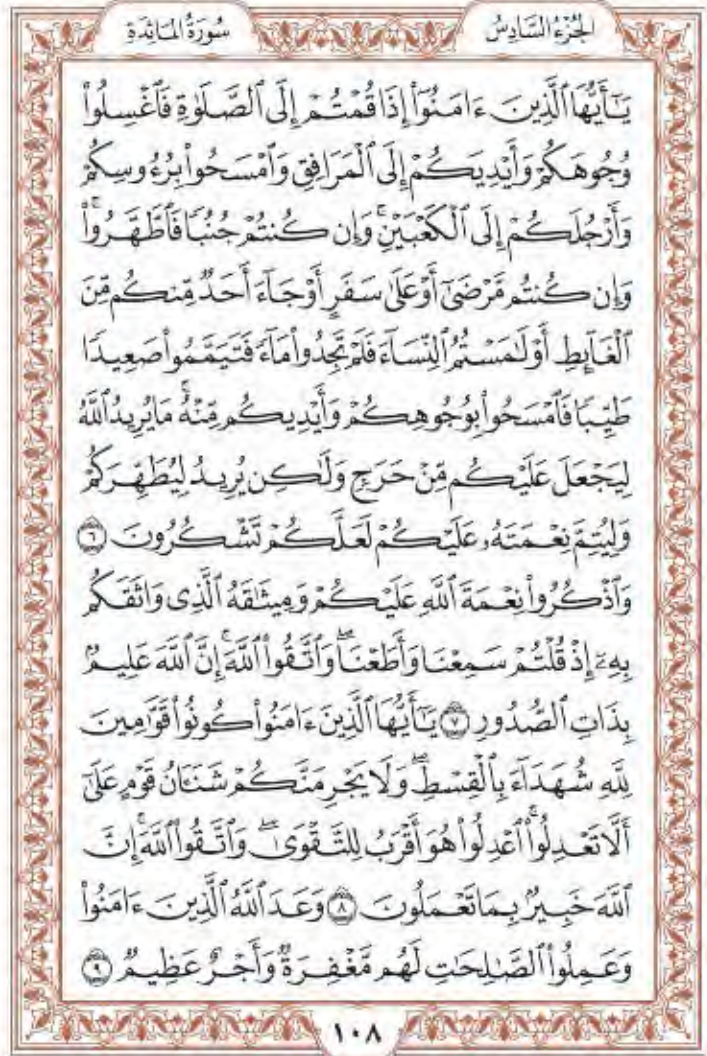 الجُزْءُ السَّادِسُ سُورَةُ المَائِدَةِ
يَـٰٓأَيُّهَا ٱلَّذِينَ ءَامَنُوٓا۟ إِذَا قُمْتُمْ إِلَى ٱلصَّلَوٰةِ فَٱغْسِلُوا۟
وُجُوهَكُمْ وَأَيْدِيَكُمْ إِلَى ٱلْمَرَافِقِ وَٱمْسَحُوا۟ بِرُءُوسِكُمْ
وَأَرْجُلَكُمْ إِلَى ٱلْكَعْبَيْنِ ۚ وَإِن كُنتُمْ جُنُبًا فَٱطَّهَّرُوا۟ ۚ
وَإِن كُنتُم مَّرْضَىٰٓ أَوْ عَلَىٰ سَفَرٍ أَوْ جَآءَ أَحَدٌ مِّنكُم مِّنَ
ٱلْغَآئِطِ أَوْ لَـٰمَسْتُمُ ٱلنِّسَآءَ فَلَمْ تَجِدُوا۟ مَآءً فَتَيَمَّمُوا۟ صَعِيدًا
طَيِّبًا فَٱمْسَحُوا۟ بِوُجُوهِكُمْ وَأَيْدِيكُم مِّنْهُ ۚ مَا يُرِيدُ ٱللَّهُ
لِيَجْعَلَ عَلَيْكُم مِّنْ حَرَجٍ وَلَـٰكِن يُرِيدُ لِيُطَهِّرَكُمْ
وَلِيُتِمَّ نِعْمَتَهُۥ عَلَيْكُمْ لَعَلَّكُمْ تَشْكُرُونَ ٦
وَٱذْكُرُوا۟ نِعْمَةَ ٱللَّهِ عَلَيْكُمْ وَمِيثَـٰقَهُ ٱلَّذِى وَاثَقَكُم
بِهِۦٓ إِذْ قُلْتُمْ سَمِعْنَا وَأَطَعْنَا ۖ وَٱتَّقُوا۟ ٱللَّهَ ۚ إِنَّ ٱللَّهَ عَلِيمٌۢ
بِذَاتِ ٱلصُّدُورِ ٧ يَـٰٓأَيُّهَا ٱلَّذِينَ ءَامَنُوا۟ كُونُوا۟ قَوَّٰمِينَ
لِلَّهِ شُهَدَآءَ بِٱلْقِسْطِ ۖ وَلَا يَجْرِمَنَّكُمْ شَنَـَٔانُ قَوْمٍ عَلَىٰٓ
أَلَّا تَعْدِلُوا۟ ۚ ٱعْدِلُوا۟ هُوَ أَقْرَبُ لِلتَّقْوَىٰ ۖ وَٱتَّقُوا۟ ٱللَّهَ ۚ إِنَّ
ٱللَّهَ خَبِيرٌۢ بِمَا تَعْمَلُونَ ٨ وَعَدَ ٱللَّهُ ٱلَّذِينَ ءَامَنُوا۟
وَعَمِلُوا۟ ٱلصَّـٰلِحَـٰتِ ۙ لَهُم مَّغْفِرَةٌ وَأَجْرٌ عَظِيمٌ ٩
١٠٨